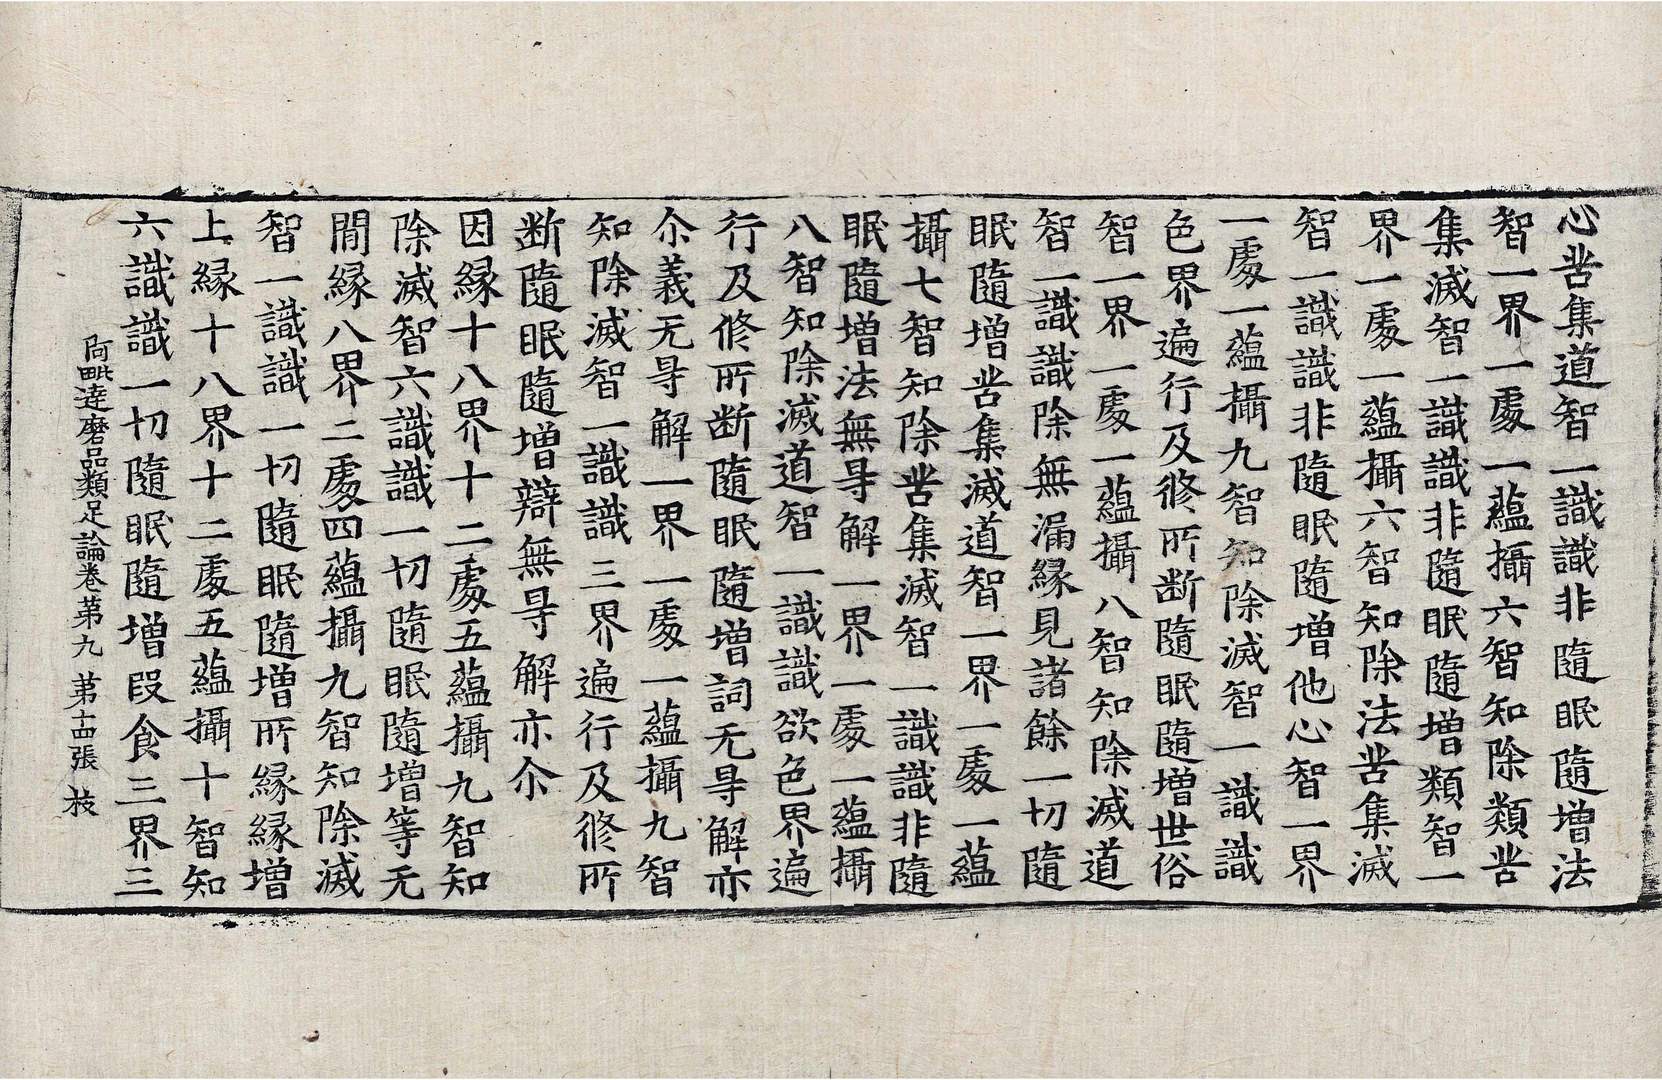 心苦集道智一識識非隨眠隨增法
智一界一處一蘊攝六智知除類苦
集滅智一識識非隨眠隨增類智一
界一處一蘊攝六智知除法苦集滅
智一識識非隨眠隨增他心智一界
一處一蘊攝九智知除滅智一識識
色界遍行及修所斷隨眠隨增世俗
智一界一處一蘊攝八智知除滅道
智一識識除無漏緣見諸餘一切隨
眠隨增苦集滅道智一界一處一蘊
攝七智知除苦集滅智一識識非隨
眠隨增法無㝵解一界一處一蘊攝
八智知除滅道智一識識欲色界遍
行及修所斷隨眠隨增詞无㝵解亦
尒義无㝵解一界一處一蘊攝九智
知除滅智一識識三界遍行及修所
断隨眠隨增辯無㝵解亦尒
因緣十八界十二處五蘊攝九智知
除滅智六識識一切隨眠隨增等无
間緣八界二處四蘊攝九智知除滅
智一識識一切隨眠隨增所緣緣增
上緣十八界十二處五蘊攝十智知
六識識一切隨眠隨增段食三界三
阿毗達磨品類足論卷第九 第十四張 枝